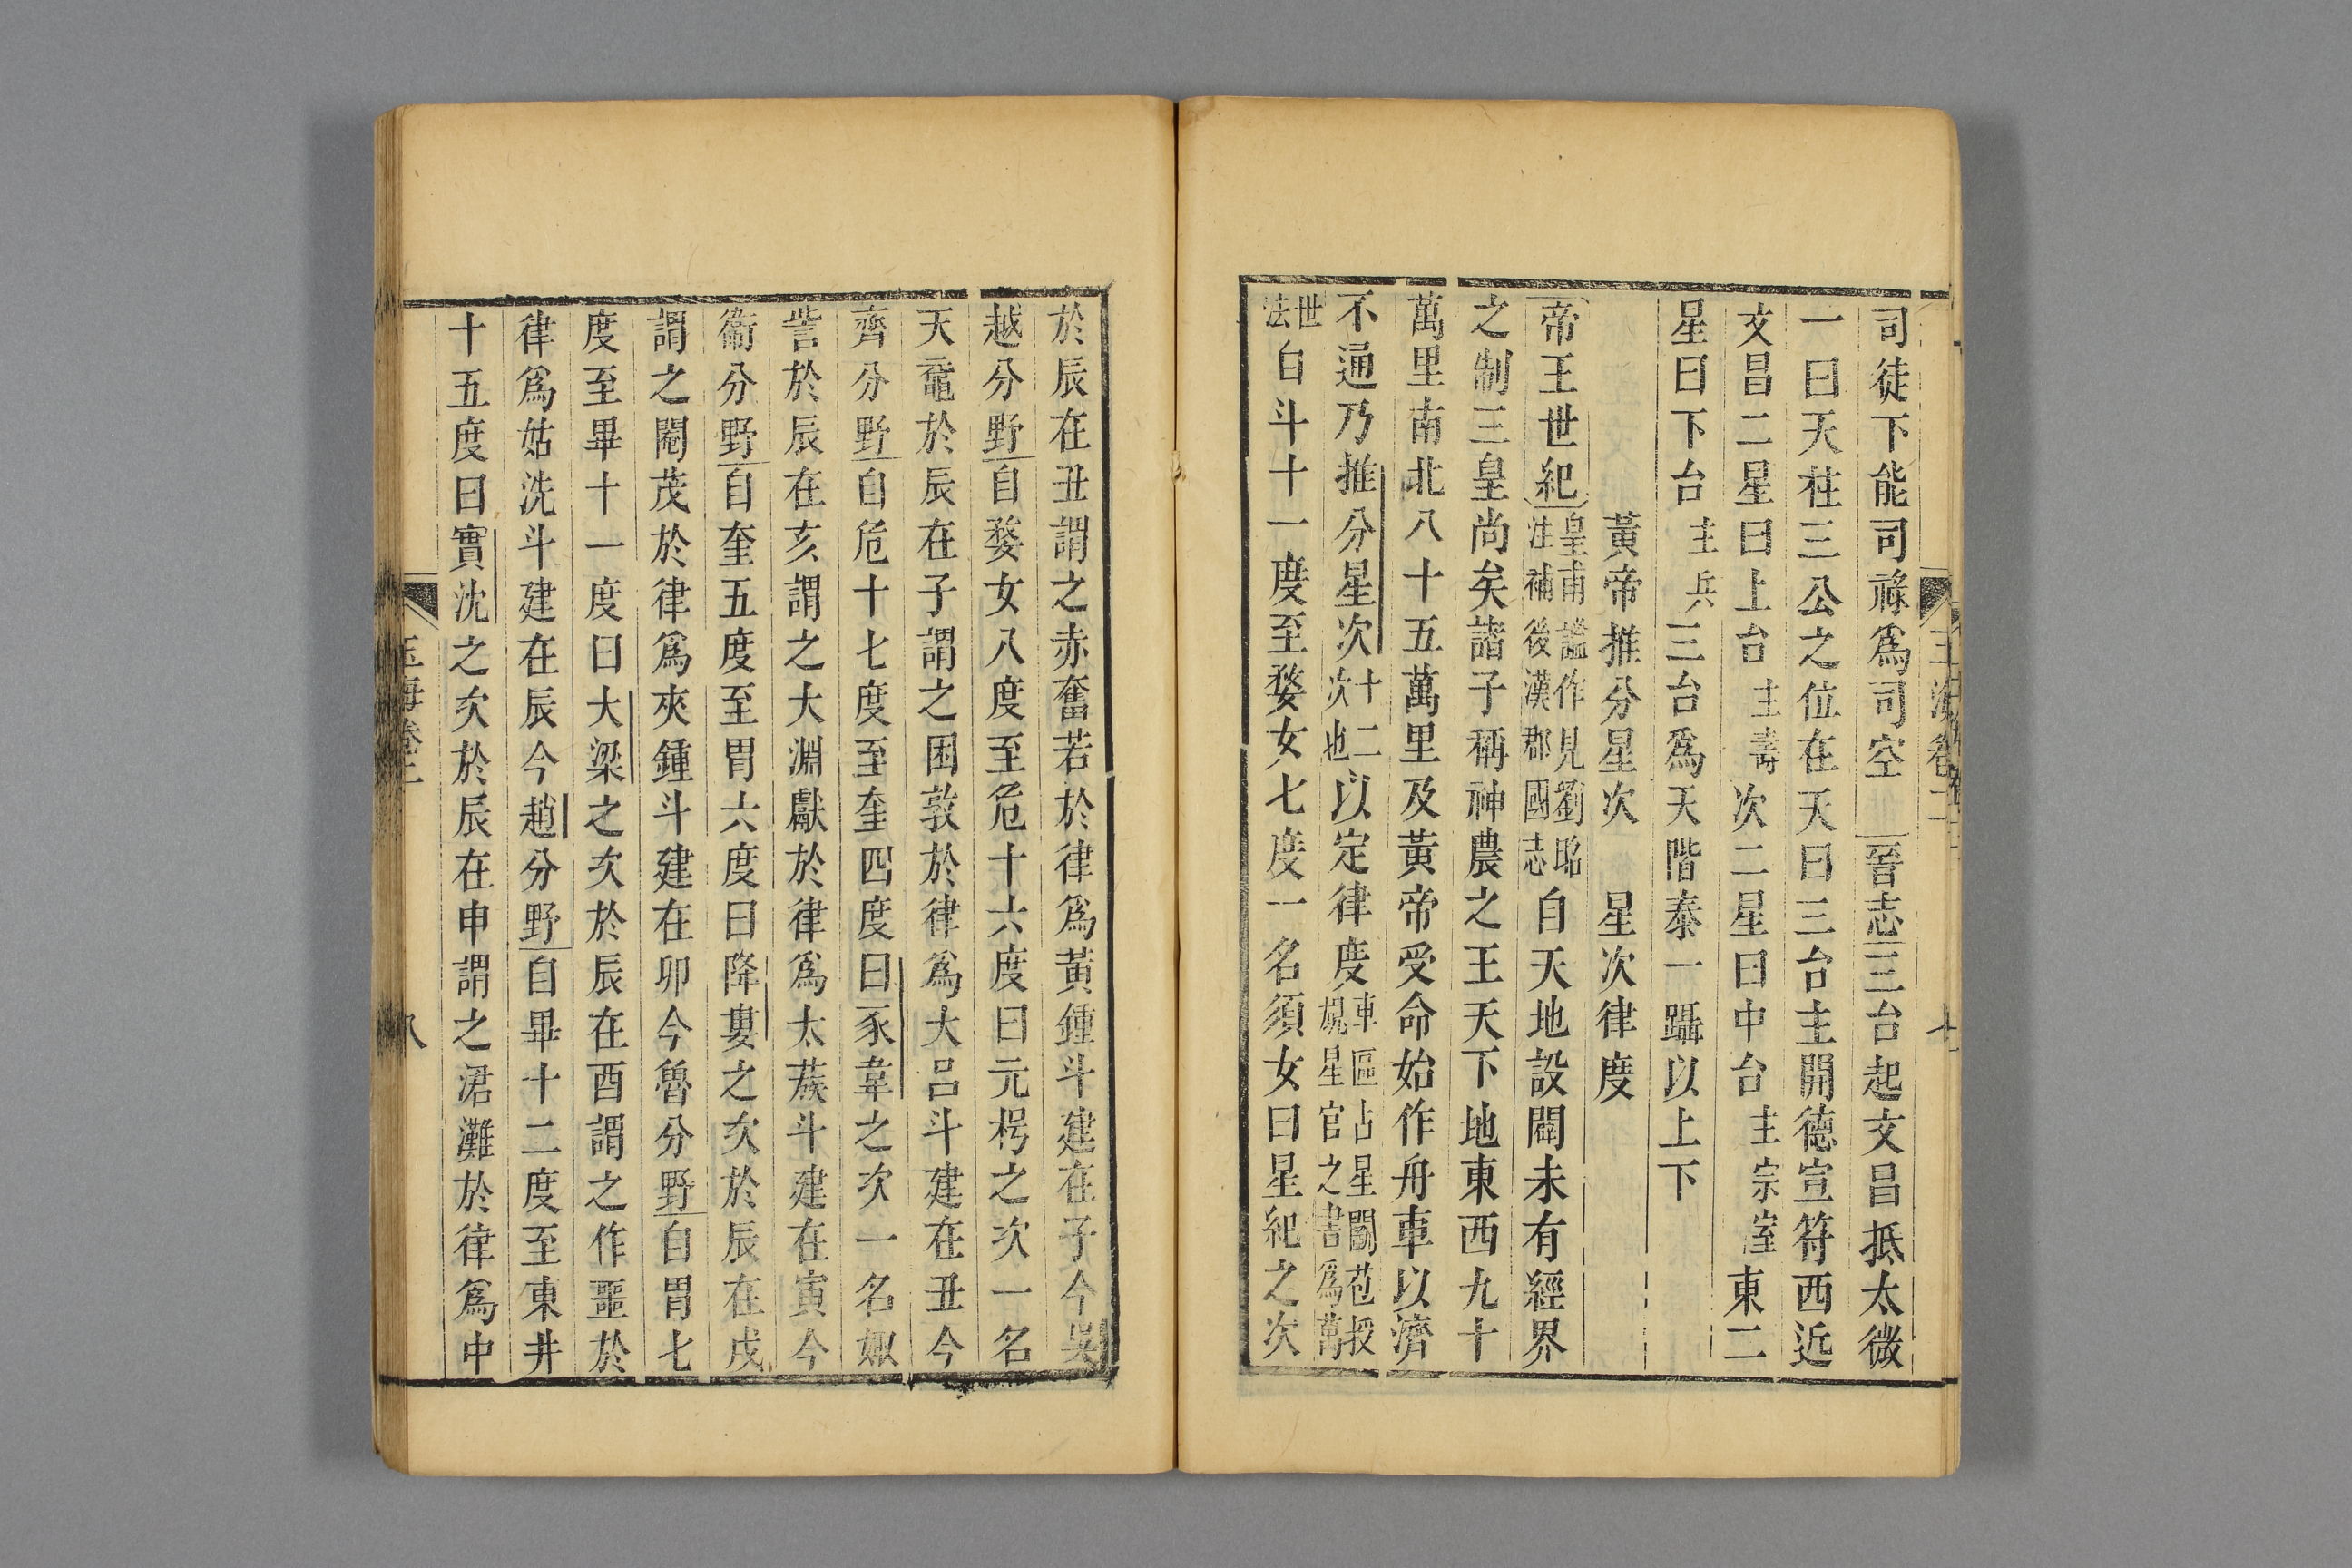 司徒下能司祿爲司空 晉志三台起文昌抵太微
一曰天柱三公之位在天曰三台主開德宣符西近
文昌二星曰上台主壽次二星曰中台主宗室東二
星曰下台主兵三台爲天階泰一躡以上下
黃帝推分星次 星次律度
帝王世紀皇甫謐作見劉昭注補後漢郡國志自天地設闢未有經界
之制三皇尚矣諸子稱神農之王天下地東西九十
萬里南北八十五萬里及黃帝受命始作舟車以濟
不通乃推分星次十二次也以定律度車區占星鬭苞授規星官之書爲萬
世法自斗十一度至婺女七度一名須女曰星紀之次
於辰在丑謂之赤奮若於律爲黃鍾斗建在子今吳
越分野自婺女八度至危十六度曰元枵之次一名
天黿於辰在子謂之困敦於律爲大呂斗建在丑今
齊分野自危十七度至奎四度曰豕韋之次一名娵
訾於辰在亥謂之大淵獻於律爲太蔟斗建在寅今
衞分野自奎五度至胃六度曰降婁之次於辰在戌
謂之閹茂於律爲夾鍾斗建在卯今魯分野自胃七
度至畢十一度曰大梁之次於辰在酉謂之作噩於
律爲姑洗斗建在辰今趙分野自畢十二度至東井
十五度曰實沈之次於辰在申謂之涒灘於律爲中
玉海卷二
八